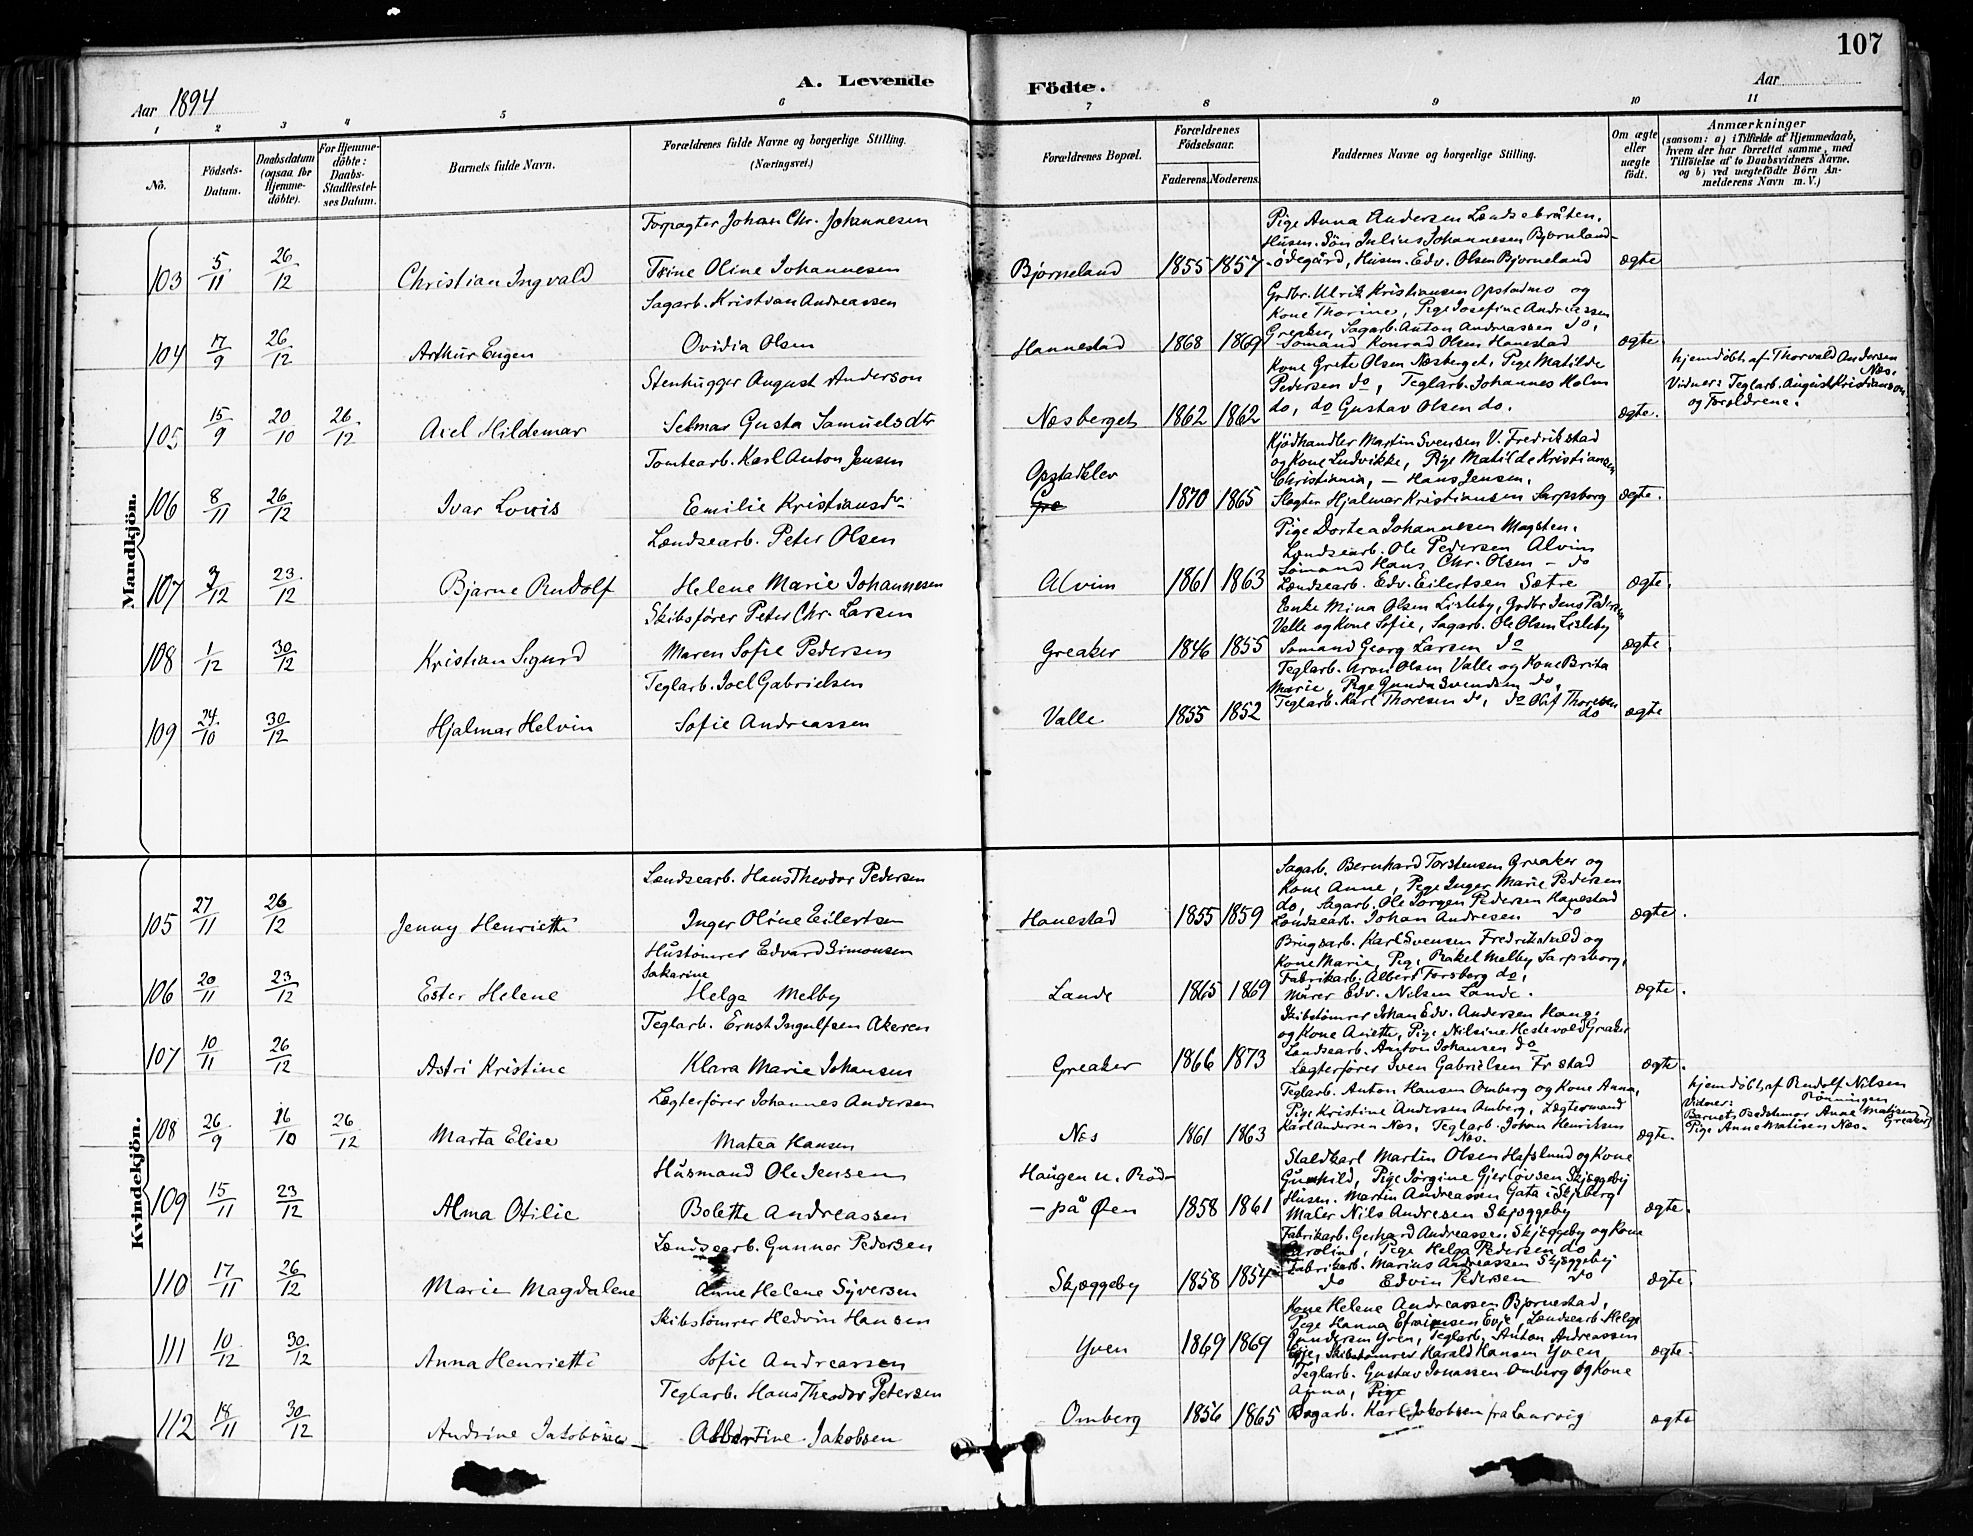 107
A. Levende Födte.
Aar 1894
Aar
1 2 3 4 5 6 7 8 9 10 11
No.
Födsels-Datum.
Daabsdatum (ogsaa for Hjemme-döbte).
For Hjemme-döbte: Daabs-Stadfæstel-ses Datum.
Barnets fulde Navn.
Forældrenes fulde Navne og borgerlige Stilling. (Næringsvei.)
Forældrenes Bopæl.
Forældrenes Födselsaar.
Faderens. Moderens.
Faddernes Navne og borgerlige Stilling.
Om ægte eller uægte födt.
Anmærkninger
(saasom: a) i Tilfælde af Hjemmedaab, hvem der har forrettet samme, med Tilföielse af to Daabsvidners Navne. og b) ved uægtefödte Börn An-melderens Navn m. V.)
Mandkjön.
103 5/11 26/12 Christian Ingvald
Forpagter Johan Chr. Johannesen
Trine Oline Johannesen
Bjørneland 1855 1857
Pige Anna Andersen Lændsebråten,
Husm. Søn Julius Johannesen Bjørneland-
-ødegård, Husm. Edv. Olsen Bjørneland
ægte
104 17/9 26/12 Arthur Eugen
Sagarb. Kristian Andreassen
Ovidia Olsen
Hannestad 1868 1869
Grdbr. Ulrik Kristiansen Opstadmo og
Kone Thorine, Pige Josefine Andreassen
Greaker, Sagarb. Anton Andreassen do,
Sømand Konrad Olsen Hanestad
ægte
105 15/9 20/10 26/12 Axel Hildemar
Stenhugger August Anderson
Selmar Gusta Samuelsdtr
Næsberget 1862 1862
Kone Grete Olsen Næsberget, Pige Matilde
Pedersen do, Teglarb. Johannes Holm
do, do Gustav Olsen do.
ægte.
hjemdöbt af Thorvald Andersen
Næs.
Vidner: Teglarb. August Kristianson
og Forældrene.
106 8/11 26/12 Ivar Louis
Tomtearb. Karl Anton Jensen
Emilie Kristiansdr
Opstadelev
Gre
1870 1865
Kjödhandler Martin Svensen V. Fredrikstad
og Kone Ludvikke, Pige Matilde Kristiansen
Christiania, - Hans Jensen,
Slagter Hjalmar Kristiansen Sarpsborg
ægte.
107 3/12 23/12 Bjarne Rudolf
Lændsearb. Peter Olsen
Helene Marie Johannesen
Alvim 1861 1863
Pige Dortea Johannesen Magsten,
Lændsearb. Ole Pedersen Alvim
Sømand Hans Chr. Olsen - do
Lændsearb. Edv. Eilertsen Sætre
ægte.
108 1/12 30/12 Kristian Sigurd
Skibsfører Peter Chr. Larsen
Maren Sofie Pedersen
Greaker 1846 1855
Enke Mina Olsen Lisleby, Grdbr Jens Pedersen
Valle og Kone Sofie, Sagarb. Ole Olsen Lisleby
Sømand Georg Larsen do
ægte.
109 24/10 30/12 Hjalmar Helvin
Teglarb. Joel Gabrielsen
Sofie Andreassen
Valle 1855 1852
Teglarb. Aron Olsen Valle og Kone Brita
Marie, Pige Gunda Svendsen do,
Teglarb. Karl Thoresen do, do Olif Thoresen
do
ægte
Kvindekjön.
105 27/11 26/12 Jenny Henriette
Lændsearb. Hans Theodor Pedersen
Inger Oline Eilertsen
Hanestad 1855 1859
Sagarb. Bernhard Torstensen Greaker og
Kone Anne, Pige Inger Marie Pedersen
do, Sagarb. Ole Jørgen Pedersen Hanestad
Lændsearb. Johan Andresen do
ægte.
106 20/11 23/12 Ester Helene
Hustømrer Edvard Simonsen
Sakarine
Helga Melby
Lande 1865 1869
Brugsarb. Karl Svensen Fredrikshald og
Kone Marie, Pige Rakel Melby Sarpsborg,
Fabrikarb. Albert Forsberg do,
Murer Edv. Nilsen Lande.
ægte.
107 10/11 26/12 Astri Kristine
Teglarb. Ernst Ingulfsen Akeren
Klara Marie Johansen
Greaker 1866 1873
Skibstømrer Johan Edv. Andersen Haug,
og Kone Anette, Pige Nilsine Hestevold Greaker
Lændsearb. Anton Johansen do
Lægterfører Sven Gabrielsen Frstad
ægte.
108 26/9 16/10 26/12 Marta Elise
Lægterfører Johannes Andersen
Matea Hansen
Næs 1861 1863
Teglarb. Anton Hansen Omberg og Kone Anna,
Pige Kristine Andersen Omberg, Lægtermand
Karl Andersen Næs, Teglarb. Johan Henriksen
Næs.
ægte.
hjemdöbt af Rudolf Nilsen
Rönningen
Vidner:
Barnets Bedstemor Anne Matisen
Pige Anne Matisen Næs. Greaker
109 15/11 23/12 Alma Otilie
Husmand Ole Jensen
Bolette Andreassen
Haugen u. Rød-
-på Øen 1858 1861
Staldkarl Martin Olsen Hafslund og Kone
Gunhild, Pige Jørgine Gjerløvsen Skjæggeby
Husm. Martin Andreassen Gata i Skjeberg
Maler Nils Andresen Skjæggeby
ægte.
110 17/11 26/12 Marie Magdalene
Lændsearb. Gunner Pedersen
Anne Helene Syversen
Skjæggeby 1858 1854
Fabrikarb. Gerhard Andreassen Skjæggeby og Kone
Karoline, Pige Helga Pedersen do
Fabrikarb. Marius Andreassen Skjæggeby
do Edvin Pedersen do
ægte
111 10/12 30/12 Anna Henriette
Skibstømrer Hedvin Hansen
Sofie Andreassen
Yven 1869 1869
Kone Helene Andreassen Bjørnestad,
Pige Hanna Efraimsen Evje, Lændsearb. Helge
Gundersen Yven, Teglarb. Anton Andreassen
Evje, Skibstømrer Harald Hansen Yven
ægte.
112 18/11 30/12 Andrine Jakobine
Teglarb. Hans Theodor Petersen
Albertine Jakobsen
Omberg 1856 1865
Teglarb. Gustav Jonassen Omberg og Kone
Anna, Pige
Bagarb. Karl Jakobsen fra Laurvig
ægte